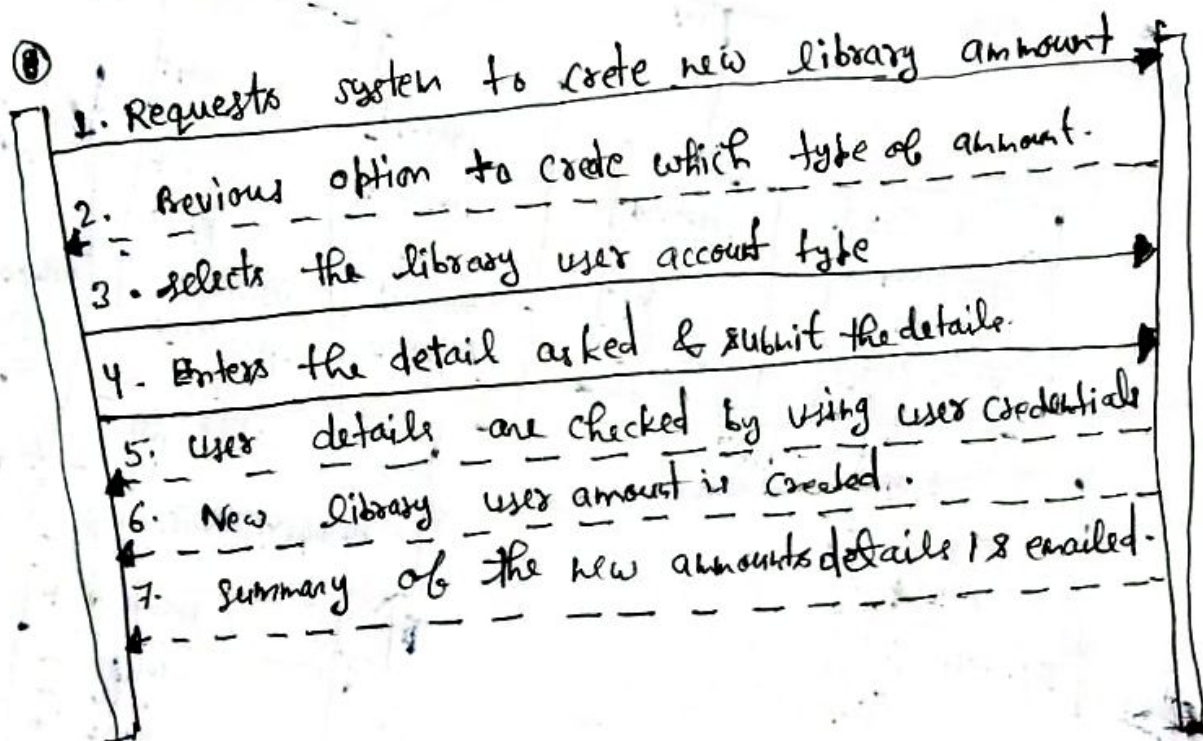 1. Requests system to crete new library ammount
2. Bevious option to crete which type of ammount.
3. selects the library user account type
4. Enters the detail asked & submit the details.
5. user details are checked by using user credentials
6. New library user amount is created.
7. Summary of the new ammounts details is emailed.